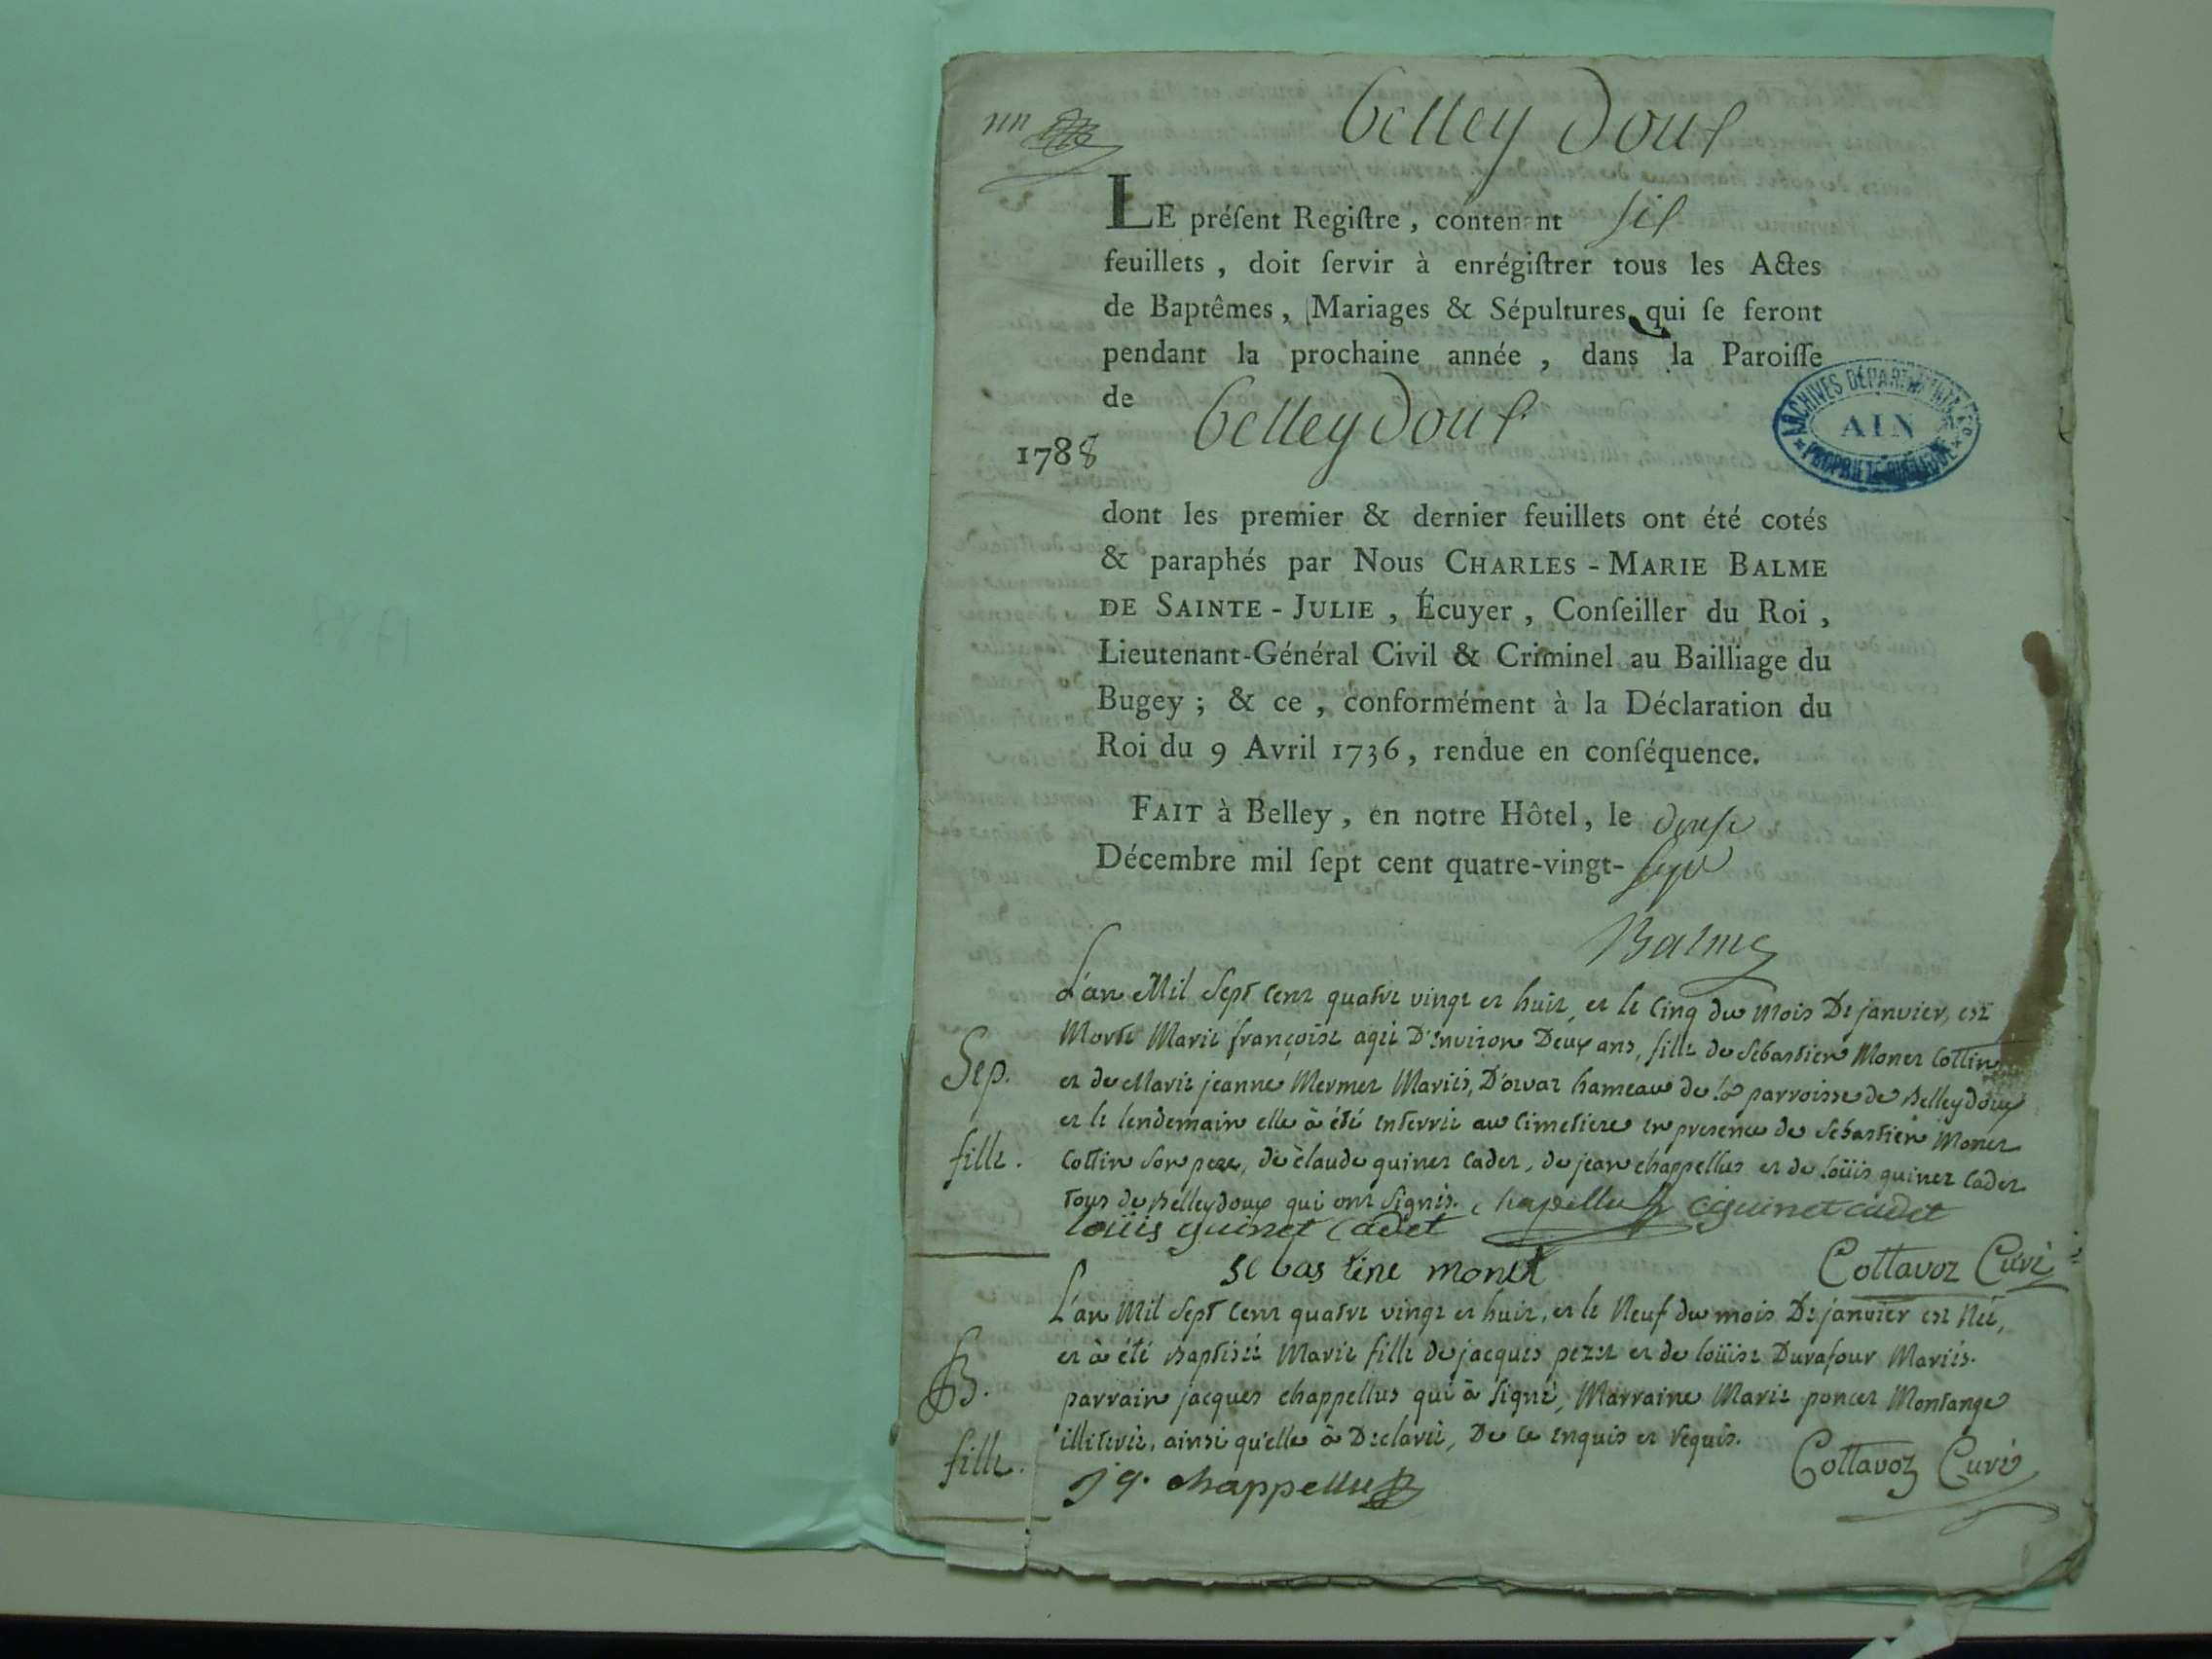 belley Doux
LE préſent Regiſtre, conten nt six
feuillets, doit ſervir à enrégiſtrer tous les Actes
de Baptêmes, Mariages & Sépultures qui ſe feront
pendant la prochaine année, dans la Paroiſſe
de belley Doux
1788
ARCHIVES DÉPARTEMENTALES
AIN
PROPRIÉTÉ PUBLIQUE
dont les premier & dernier feuillets ont été cotés
& paraphés par Nous CHARLES-MARIE BALME
DE SAINTE-JULIE, Écuyer, Conſeiller du Roi,
Lieutenant-Général Civil & Criminel au Bailliage du
Bugey; & ce, conformément à la Déclaration du
Roi du 9 Avril 1736, rendue en conſéquence.
FAIT à Belley, en notre Hôtel, le douse
Décembre mil ſept cent quatre-vingt-sept
Balme
L'an Mil Sept cent quatre vingt et huit, et le Cinq du mois De janvier, est
Morte Marie françoise agée D'environ Deux ans, fille de Sebastien Monet Cottin
et de Marie jeanne Mermet Mariés, D'orvaz hameau de la parroisse de Belleydoux
et le lendemain elle à été enterrée au Cimetiere en presence de Sebastien Monet
Cottin son pere, de claude guinet Cadet, de jean chappellus et de loüis guinet Cadet
tous de Belleydoux qui ont signés. chapellus cguinet cadet
Sep.
fille.
loüis guinet Cadet
se bas tine monet
Cottavoz Curé
L'an Mil Sept cent quatre vingt et huit, et le Neuf du mois De janvier est Née,
et à été Baptisée Marie fille de jacques pezet et de loüise Durafour Mariés.
parrain jacques chappellus qui à signé, Marraine Marie poncet Montange
illiterée, ainsi qu'elle à Declarée, De ce enquis et requis.
B.
fille.
Cottavoz Curé
jq. chappellus